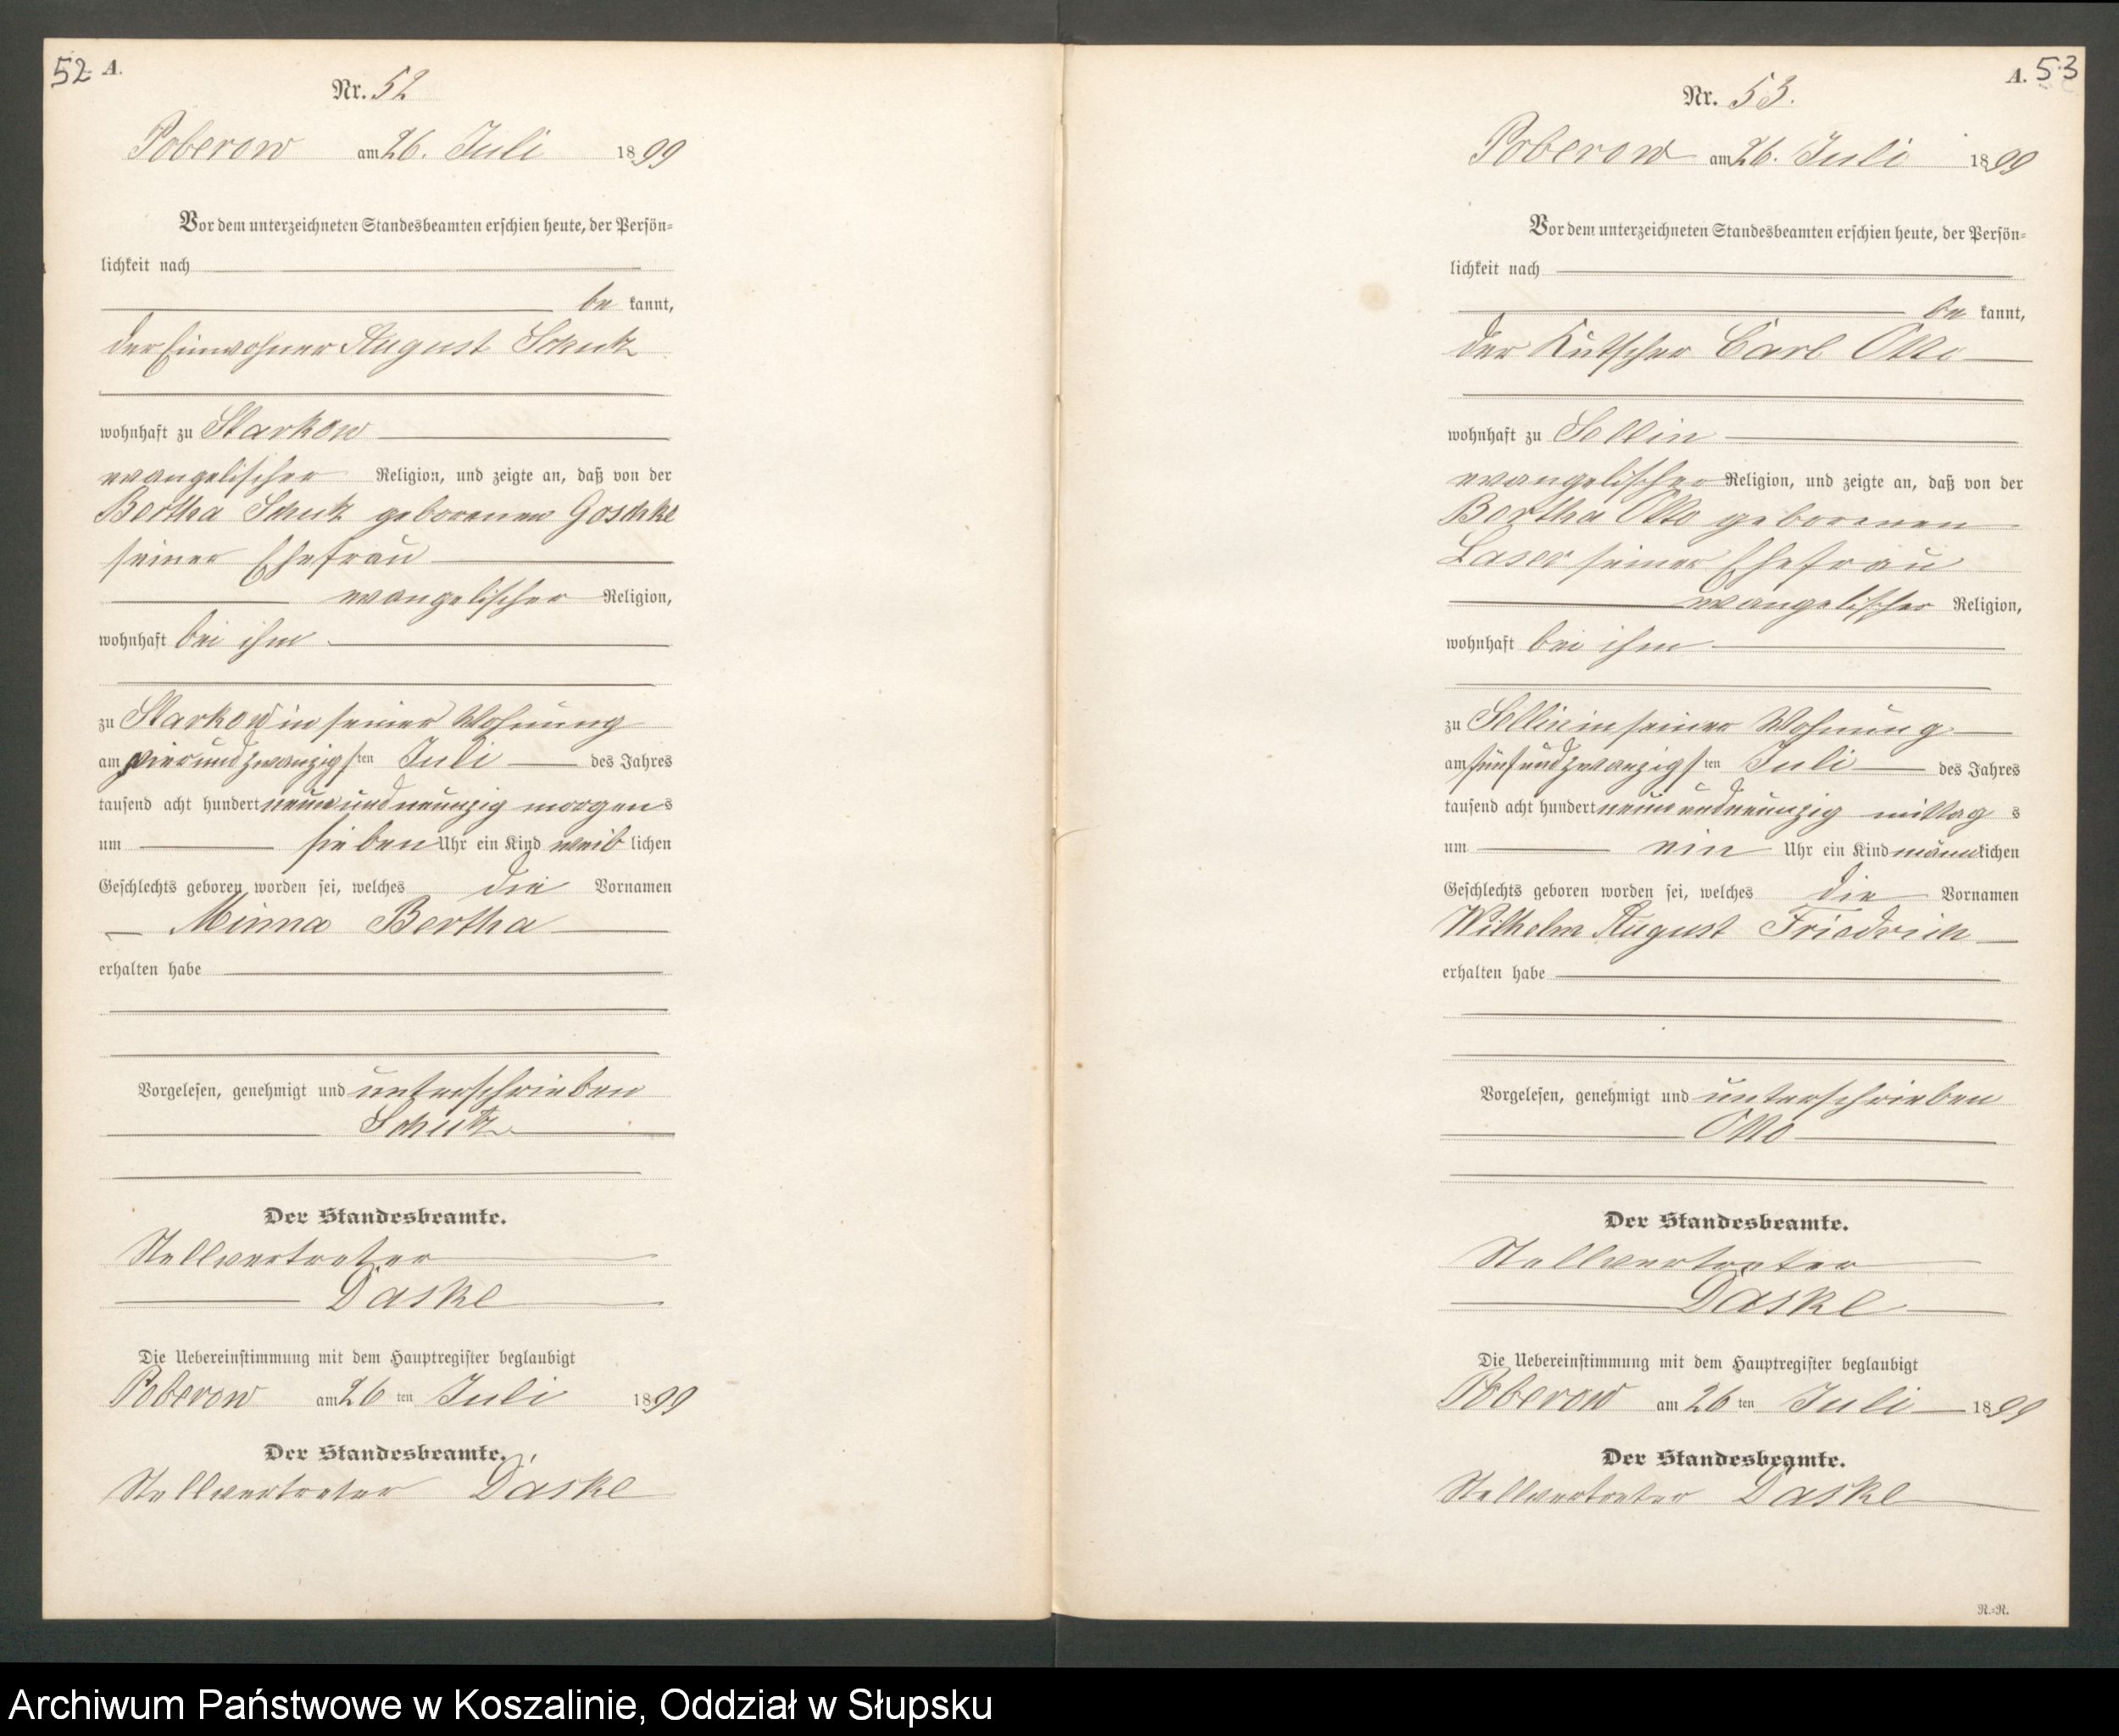 52 A.
Nr. 52
Poberow am 26. Juli 1899
Vor dem unterzeichneten Standesbeamten erschien heute, der Persön=
lichkeit nach
be kannt,
der Einwohner August Schutz
wohnhaft zu Starkow
evangelischer Religion, und zeigte an, daß von der
Bertha Schutz geborenen Goschke
seiner Ehefrau
evangelischer Religion,
wohnhaft bei ihm
zu Starkow in seiner Wohnung
am vierundzwanzigsten Juli des Jahres
tausend acht hundert neunundneunzig morgens
um sieben Uhr ein Kind weiblichen
Geschlechts geboren worden sei, welches die Vornamen
Minna Bertha
erhalten habe
Vorgelesen, genehmigt und unterschrieben
Schutz
Der Standesbeamte.
Stellvertreter
Daske
Die Uebereinstimmung mit dem Hauptregister beglaubigt
Poberow am 26 ten Juli 1899
Der Standesbeamte.
Stellvertreter Daske
A. 53
Nr. 53.
Poberow am 26. Juli 1899
Vor dem unterzeichneten Standesbeamten erschien heute, der Persön=
lichkeit nach
be kannt,
der Kutscher Carl Otto
wohnhaft zu Sellin
evangelischer Religion, und zeigte an, daß von der
Bertha Otto geborenen
Laser seiner Ehefrau
evangelischer Religion,
wohnhaft bei ihm
zu Sellin in seiner Wohnung
am fünfundzwanzigsten Juli des Jahres
tausend acht hundert neunundneunzig mittags
um ein Uhr ein Kind männlichen
Geschlechts geboren worden sei, welches die Vornamen
Wilhelm August Friedrich
erhalten habe
Vorgelesen, genehmigt und unterschrieben
Otto
Der Standesbeamte.
Stellvertreter
Daske
Die Uebereinstimmung mit dem Hauptregister beglaubigt
Poberow am 26 ten Juli 1899
Der Standesbeamte.
Stellvertreter Daske
R.=R.
Archiwum Państwowe w Koszalinie, Oddział w Słupsku